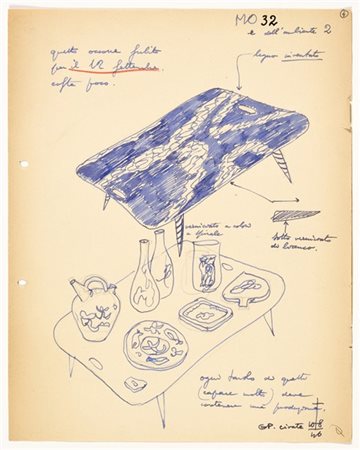 MO 32
e dell'ambiente 2
questo occorre subito
per il 12 settembre
costa poco.
legno inventato
verniciato a colori
a spirale
sotto verniciato
di bronzo.
ogni tavolo di questi
(capace molto) deve
contenere una produzione
GP. civate 10/8
46